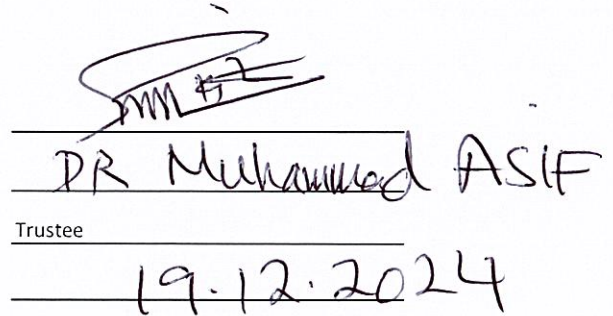 DR Muhammad ASIF
Trustee
19.12.2024